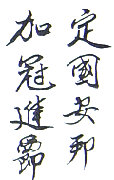 定國安邦
加冠進爵